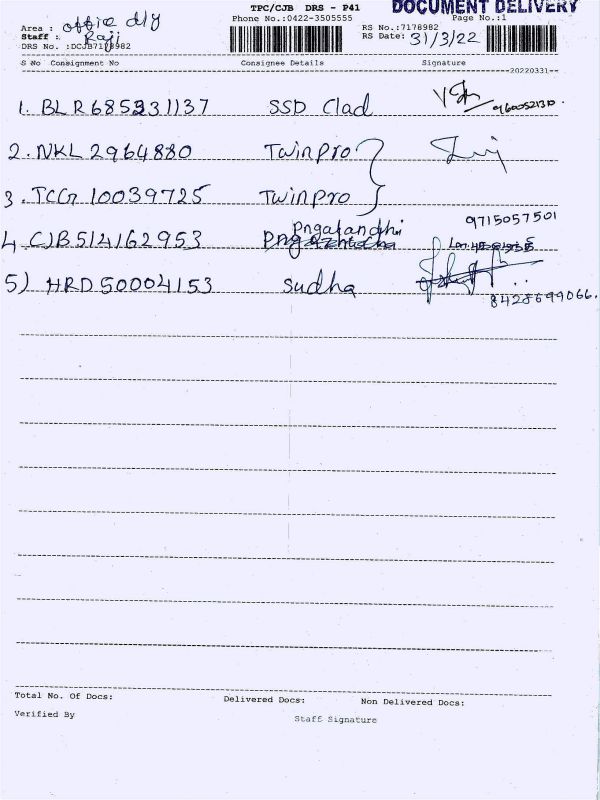 TPC/CJB DRS - P41 DOCUMENT DELIVERY
Area : office dly Phone No.:0422-3505555 RS No.:7178982 Page No.:1
Staff : Raji RS Date: 31/3/22
DRS No. :DCJB7178982
S No Consignment No Consignee Details Signature
20220331
1. BLR685231137 SSD Clad
2. NKL 2964880 Twinpro
3. TCG 10039725 Twinpro
Pngalandhi 9715057501
4. CJB514162953
5) HRD50004153 Sudha
8428699066.
Total No. Of Docs: Delivered Docs: Non Delivered Docs:
Verified By Staff Signature